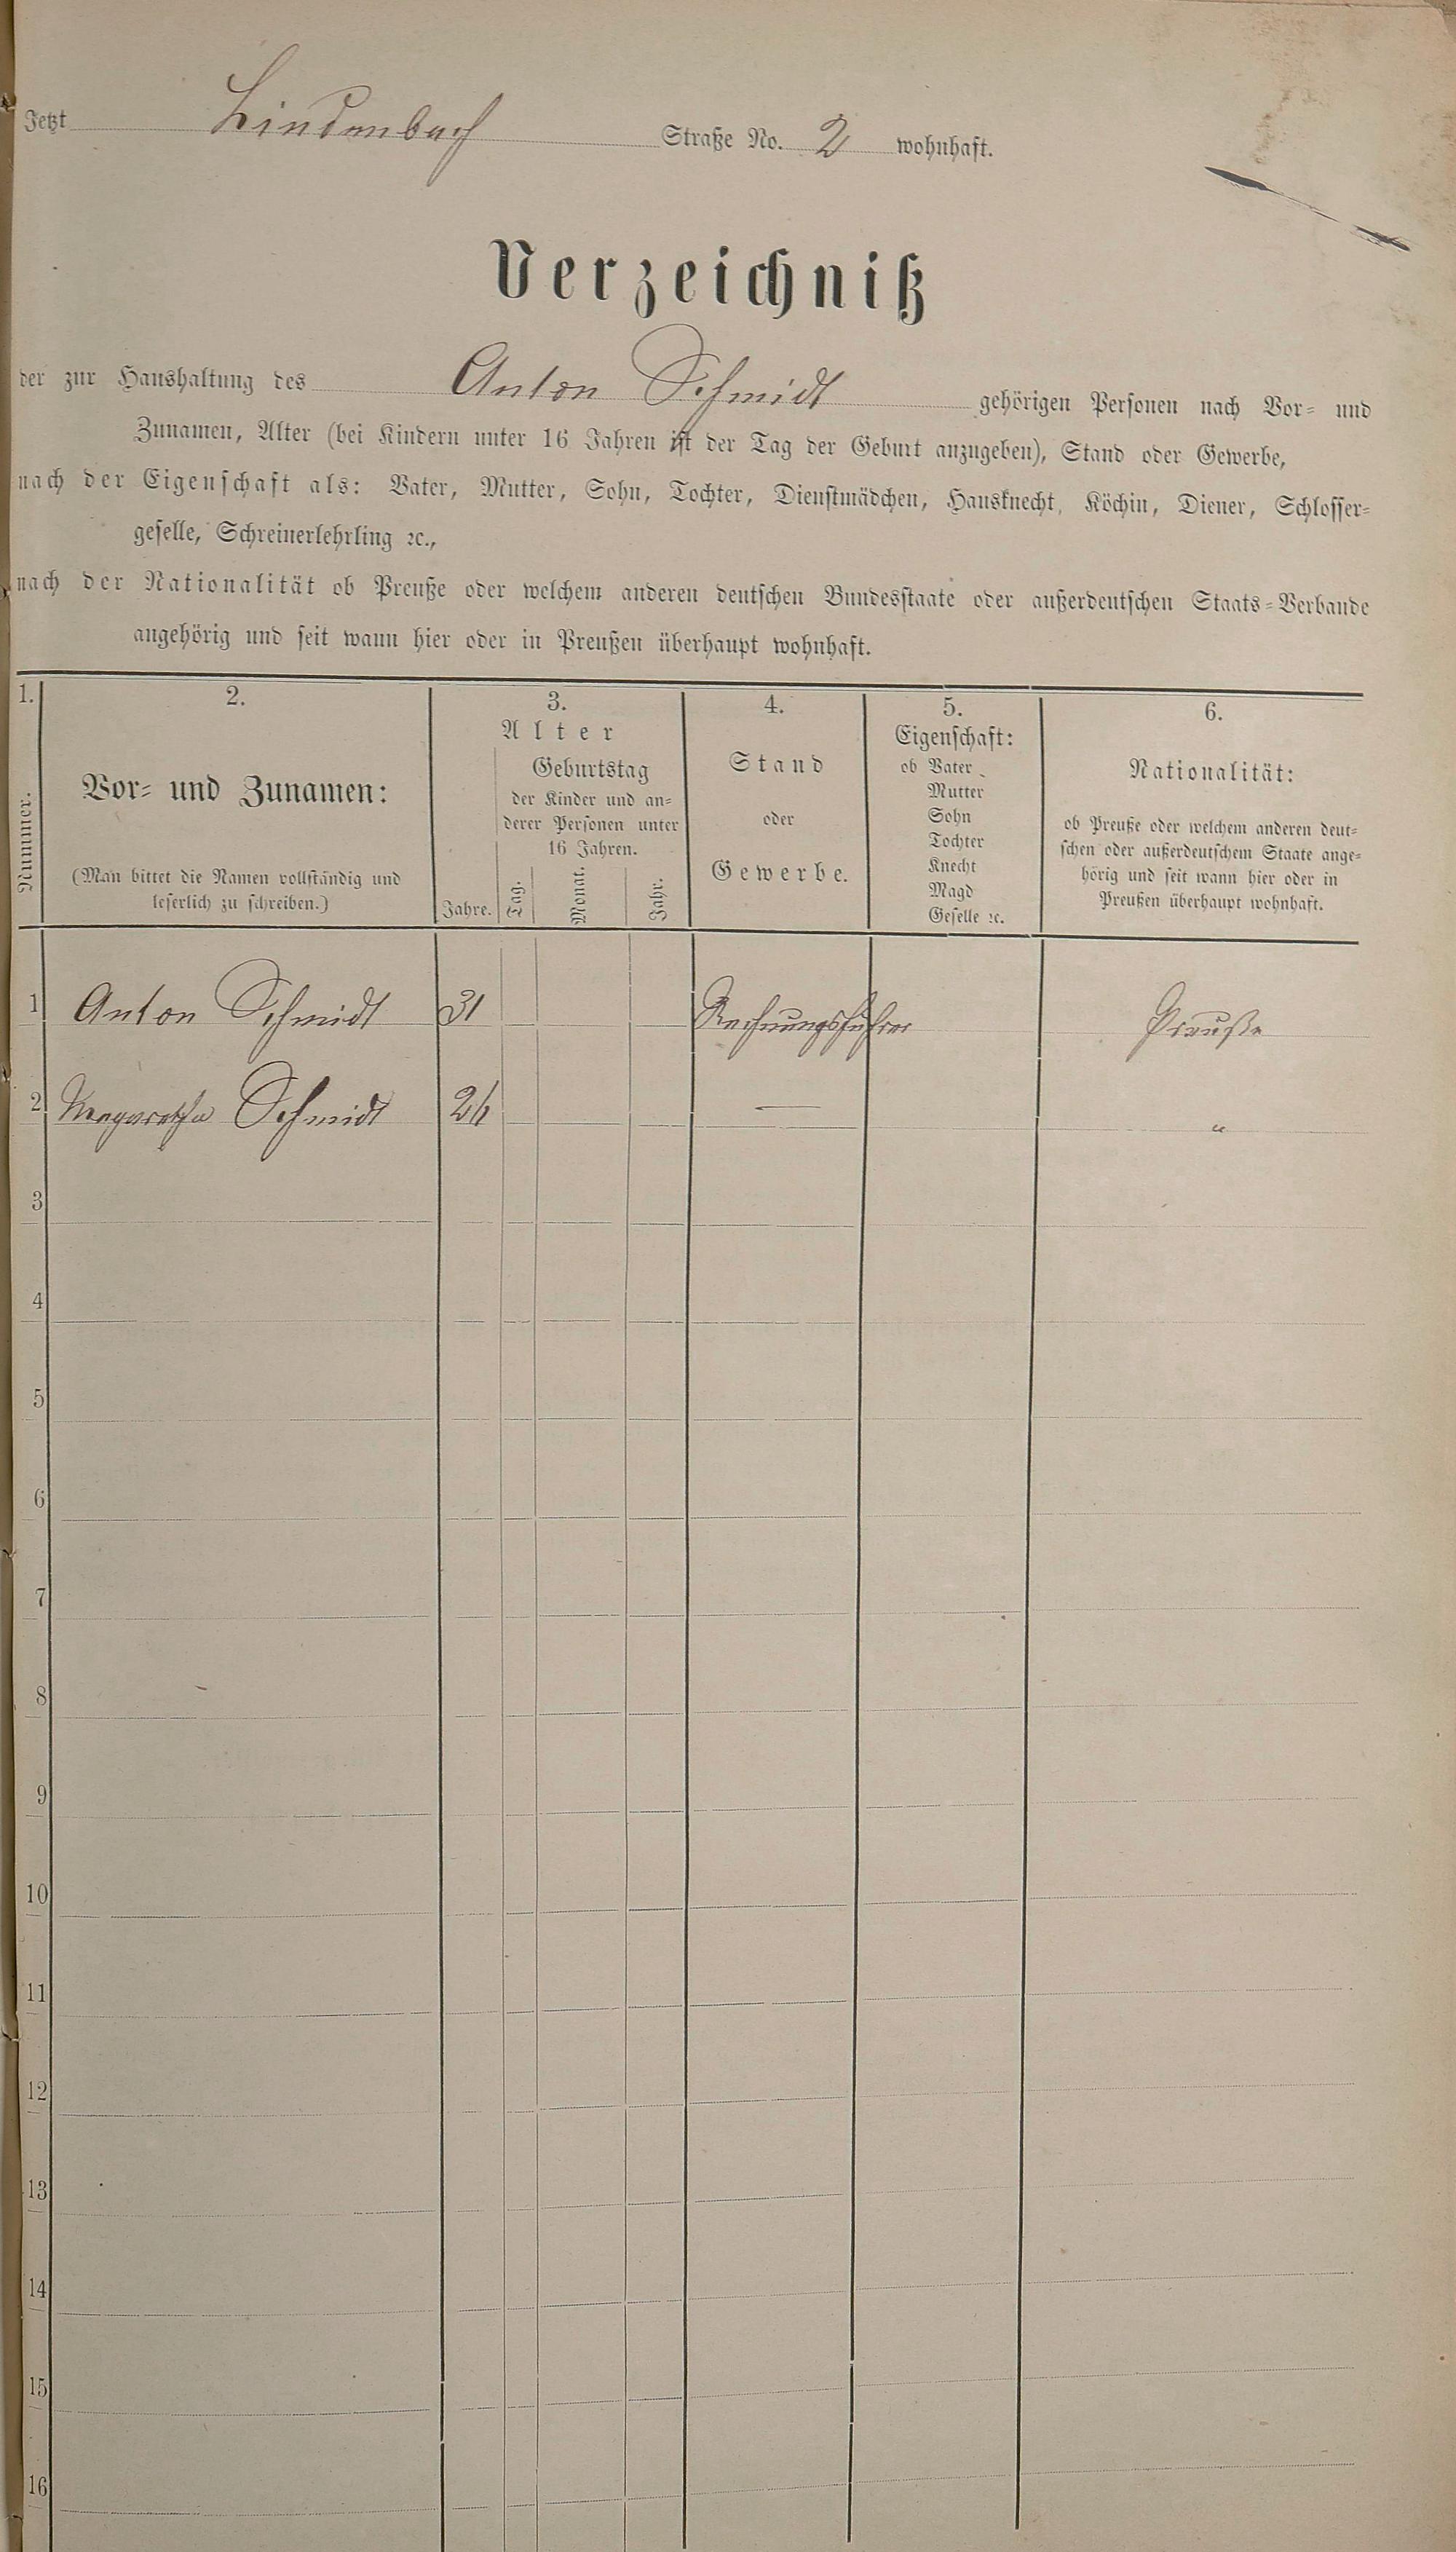 Jetzt Lindenbach Straße No. 2 wohnhaft.
Verzeichniß
der zur Haushaltung des Anton Schmidt gehörigen Personen nach Vor- und
Zunamen, Alter (bei Kindern unter 16 Jahren ist der Tag der Geburt anzugeben), Stand oder Gewerbe,
nach der Eigenschaft als: Vater, Mutter, Sohn, Tochter, Dienstmädchen, Hausknecht, Köchin, Diener, Schlosser-
geselle, Schreinerlehrling ꝛc.,
nach der Nationalität ob Preuße oder welchem anderen deutschen Bundesstaate oder außerdeutschen Staats-Verbande
angehörig und seit wann hier oder in Preußen überhaupt wohnhaft.
1. 2. 3. 4. 5. 6.
Nummer.
Vor- und Zunamen:
(Man bittet die Namen vollständig und
leserlich zu schreiben.)
Alter
Jahre.
Geburtstag
der Kinder und an-
derer Personen unter
16 Jahren.
Tag. Monat. Jahr.
Stand
oder
Gewerbe.
Eigenschaft:
ob Vater
Mutter
Sohn
Tochter
Knecht
Magd
Geselle ꝛc.
Nationalität:
ob Preuße oder welchem anderen deut-
schen oder außerdeutschem Staate ange-
hörig und seit wann hier oder in
Preußen überhaupt wohnhaft.
1 Anton Schmidt 31 Rechnungsführer Preuße
2 Margaretha Schmidt 26 — "
3
4
5
6
7
8
9
10
11
12
13
14
15
16